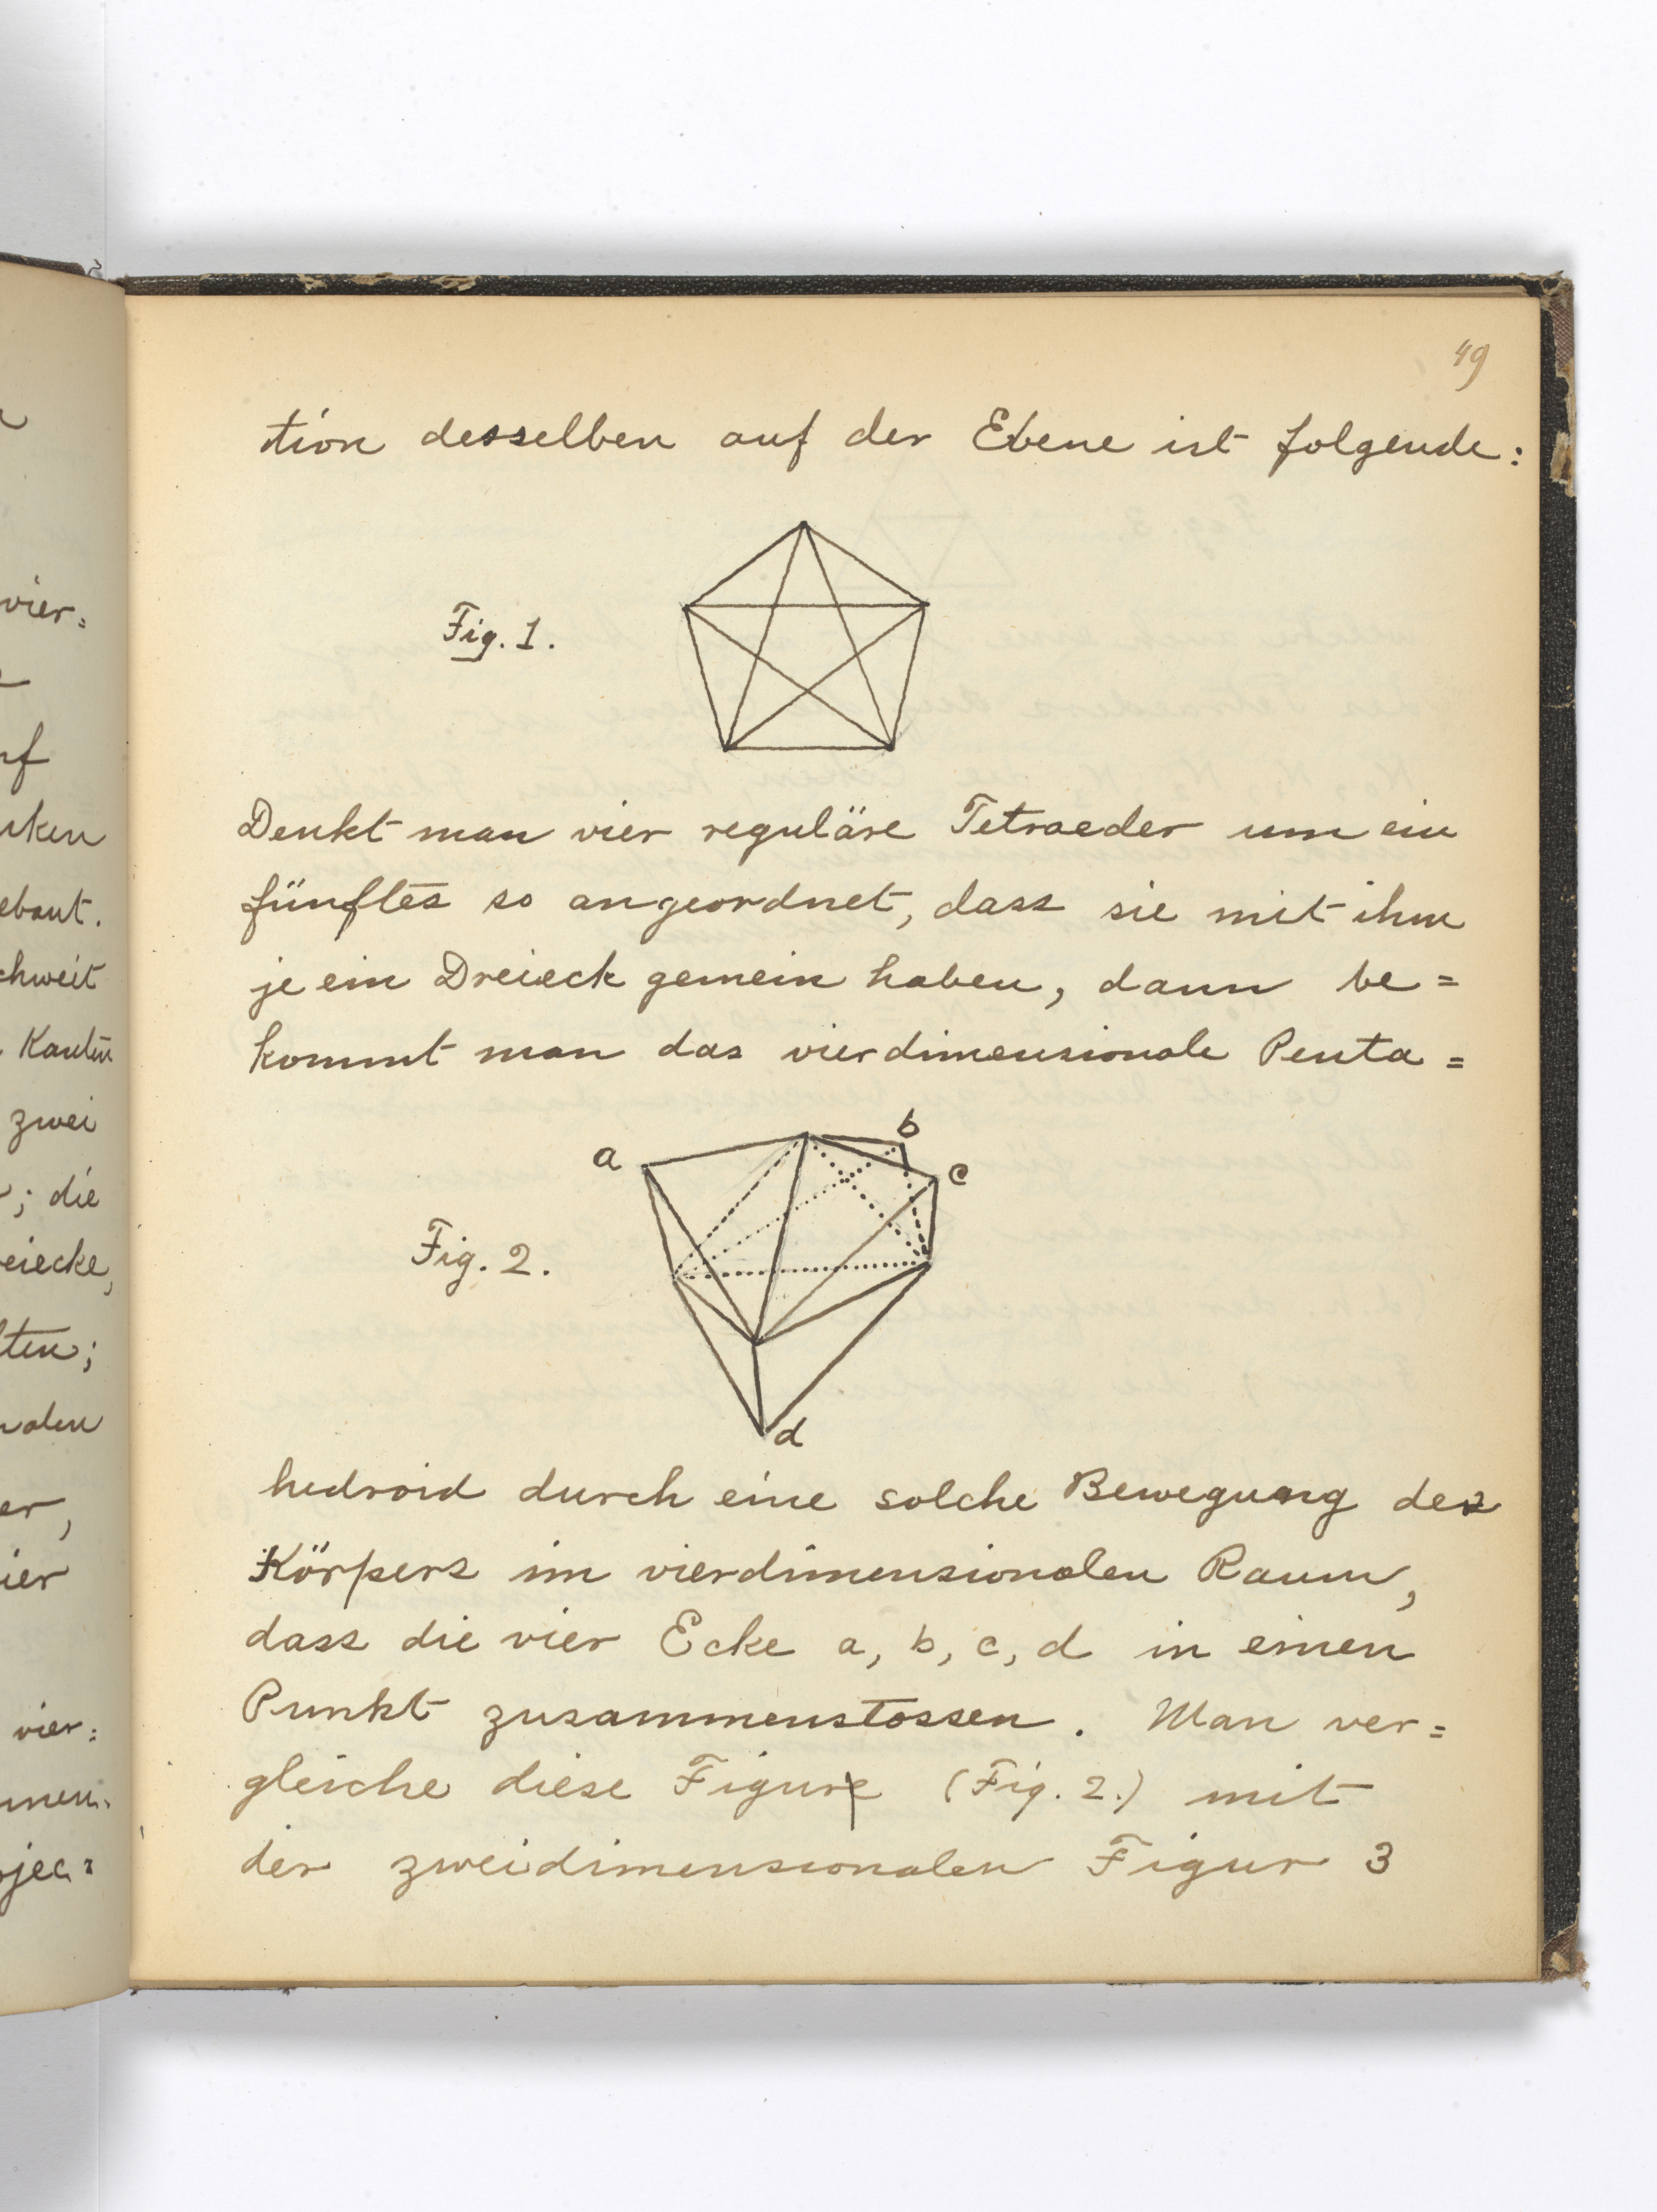 49
tion desselben auf der Ebene ist folgende:
Fig. 1.
Denkt man vier reguläre Tetraeder um ein
fünftes so angeordnet, dass sie mit ihm
je ein Dreieck gemein haben, dann be=
kommt man das vierdimensionale Penta=
a
b
c
Fig. 2.
d
hedroid durch eine solche Bewegung des
Körpers im vierdimensionalen Raum,
dass die vier Ecke a, b, c, d in einen
Punkt zusammenstossen. Man ver=
gleiche diese Figur (Fig. 2.) mit
der zweidimensionalen Figur 3
vier=
rf
rken
ebaut.
chweit
Kanten
zwei
; die
eiecke,
lten;
nalen
er,
ier
vier=
mmen.
ojec=